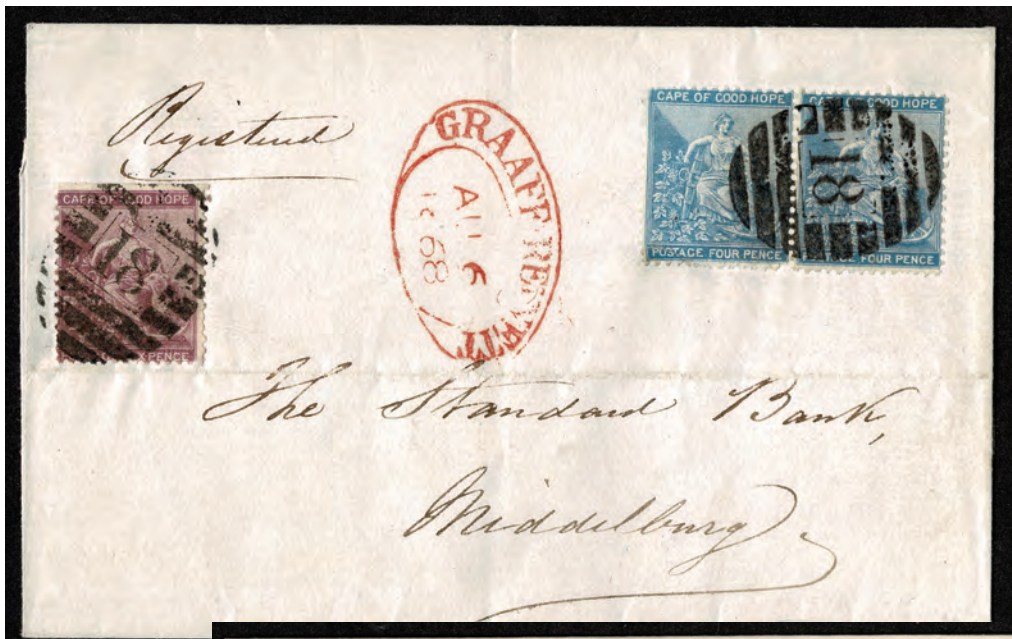 Registered
CAPE OF GOOD HOPE
18
SIX PENCE
GRAAFF REINETT
AU 6
1868
CAPE OF GOOD HOPE
POSTAGE FOUR PENCE
CAPE OF GOOD HOPE
18
FOUR PENCE
The Standard Bank,
Middelburg.